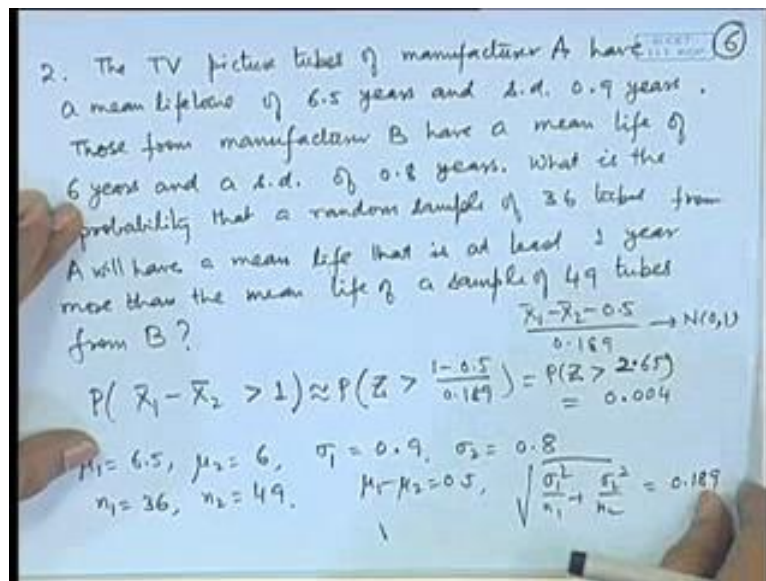 6
2. The TV picture tubes of manufacturer A have
a mean lifetime of 6.5 years and s.d. 0.9 years.
Those from manufacturer B have a mean life of
6 years and a s.d. of 0.8 years. What is the
probability that a random sample of 36 tubes from
A will have a mean life that is at least 1 year
more than the mean life of a sample of 49 tubes
from B?
(X̄₁-X̄₂-0.5)/0.189 → N(0,1)
P( X̄₁ - X̄₂ > 1) ≈ P(Z > (1-0.5)/0.189) = P(Z > 2.65)
= 0.004
μ₁= 6.5, μ₂= 6, σ₁ = 0.9, σ₂ = 0.8
n₁= 36, n₂ = 49. μ₁-μ₂=0.5, √(σ₁²/n₁ + σ₂²/n₂) = 0.189